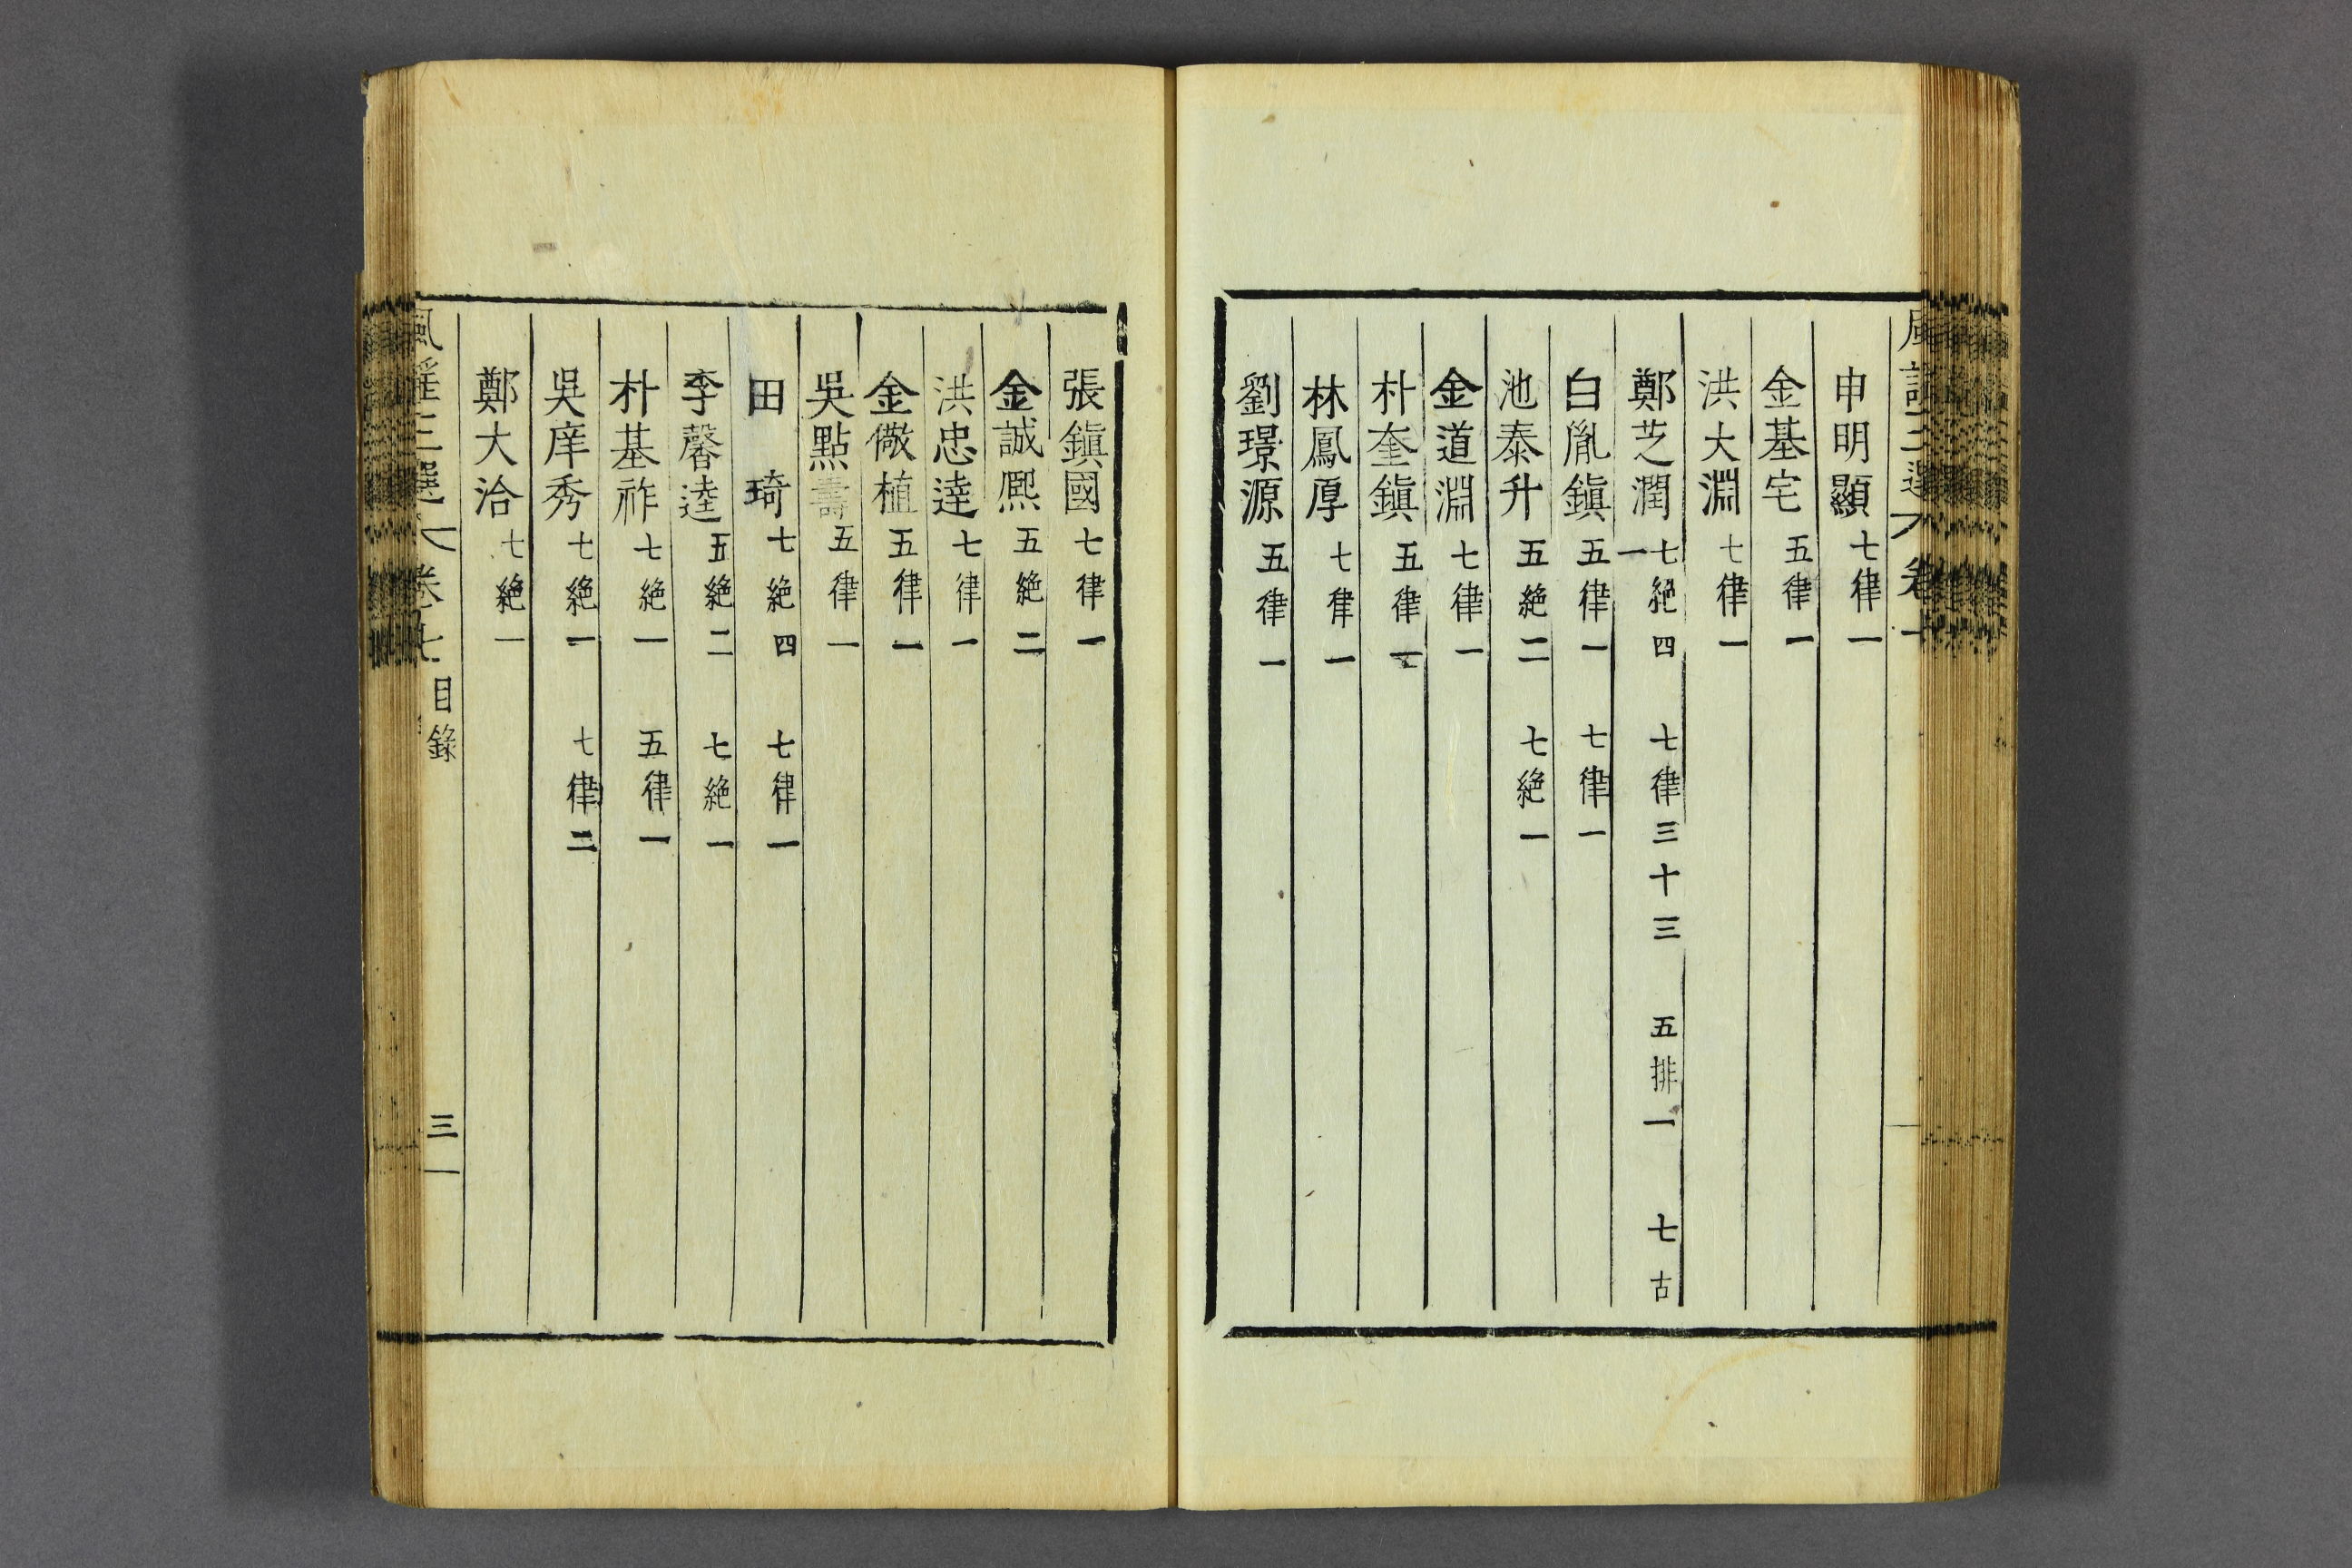 申明顯 七律一
金基宅 五律一
洪大淵 七律一
鄭芝潤 七絶四 七律三十三 五排一 七古一
白胤鎭 五律一 七律一
池泰升 五絶二 七絶一
金道淵 七律一
朴奎鎭 五律一
林鳳厚 七律一
劉璟源 五律一
張鎭國 七律一
金誠熙 五絶二
洪忠達 七律一
金儆植 五律一
吳點壽 五律一
田琦 七絶四 七律一
李馨逵 五絶二 七絶一
朴基祚 七絶一 五律一
吳庠秀 七絶一 七律二
鄭大洽 七絶一
風謠三選 卷七 目錄 三